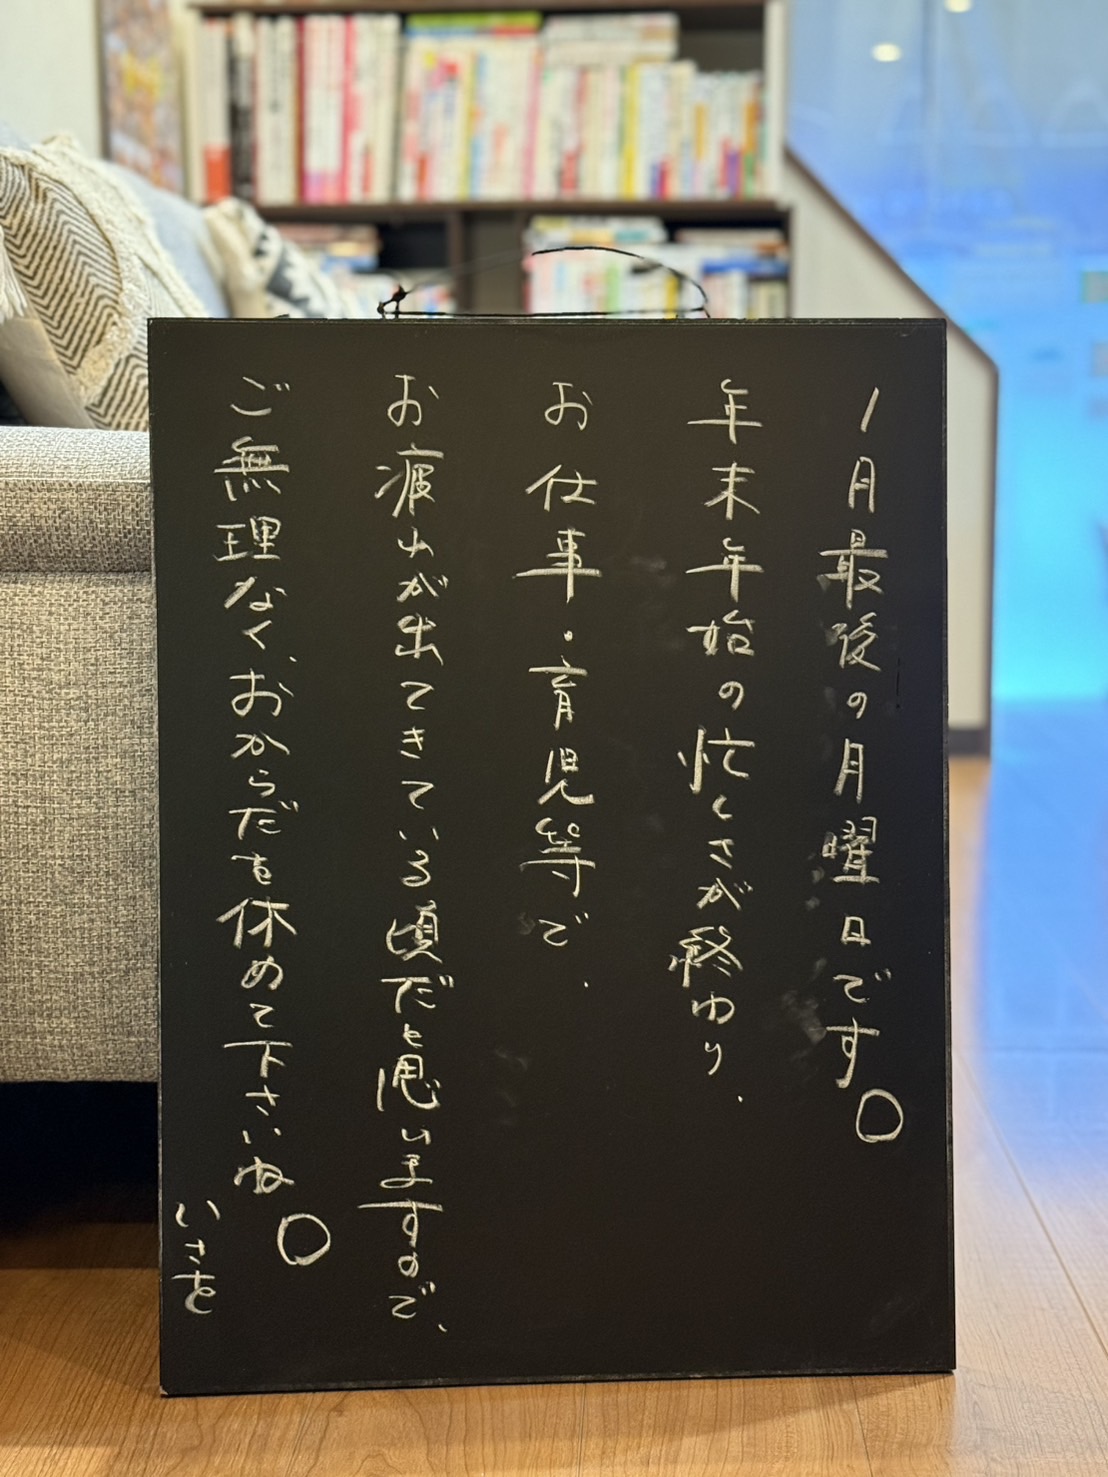 1月最後の月曜日です。
年末年始の忙しさが終わり、
お仕事・育児等で、
お疲れが出てきている頃だと思いますので、
ご無理なく、おからだを休めて下さいね。
いさを